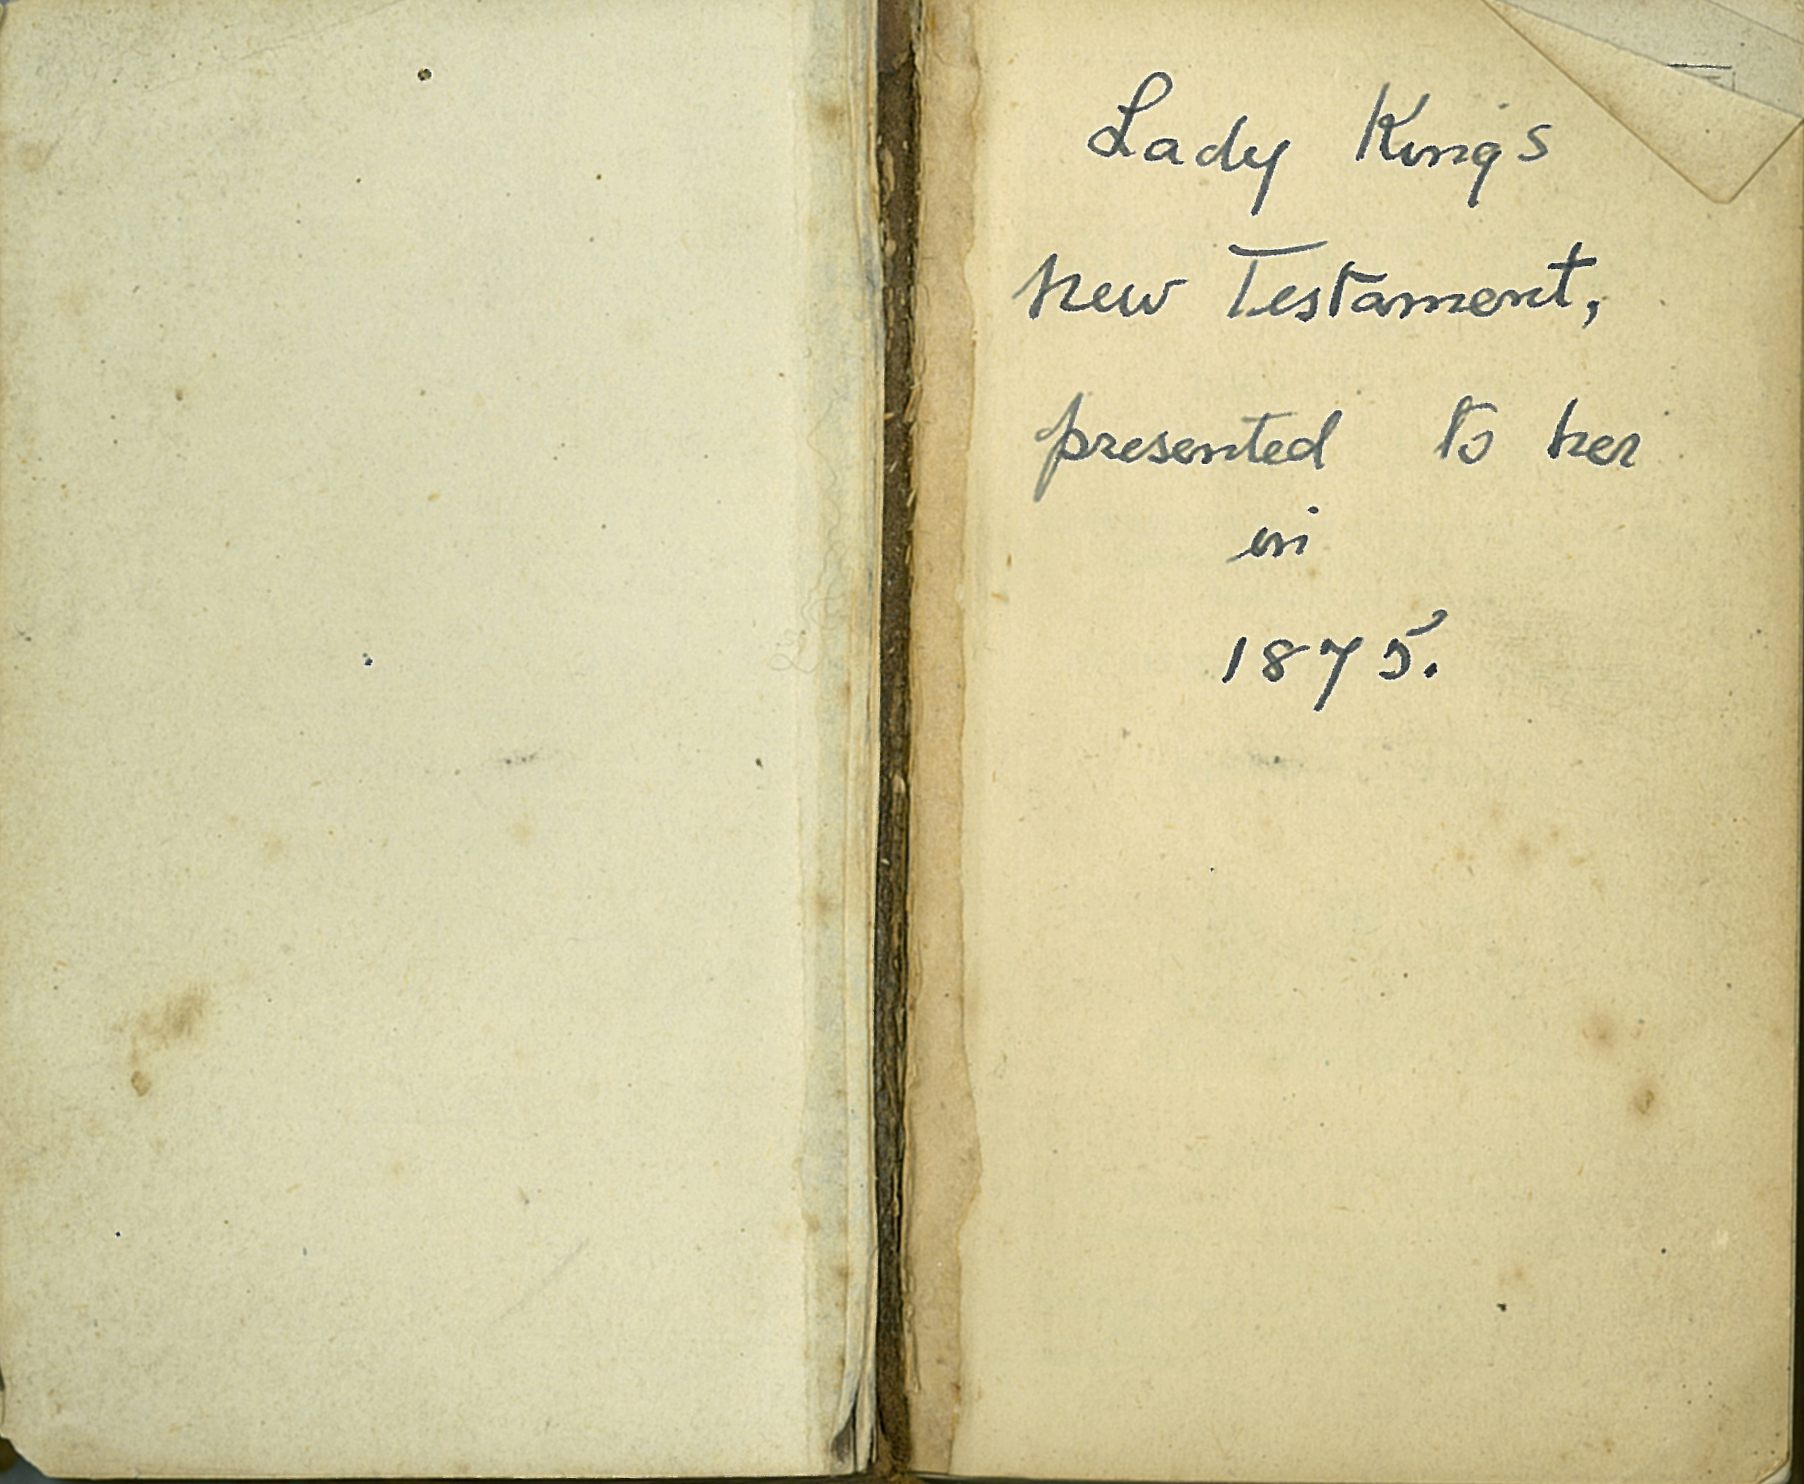 Lady King's
New Testament,
presented to her
in
1875.